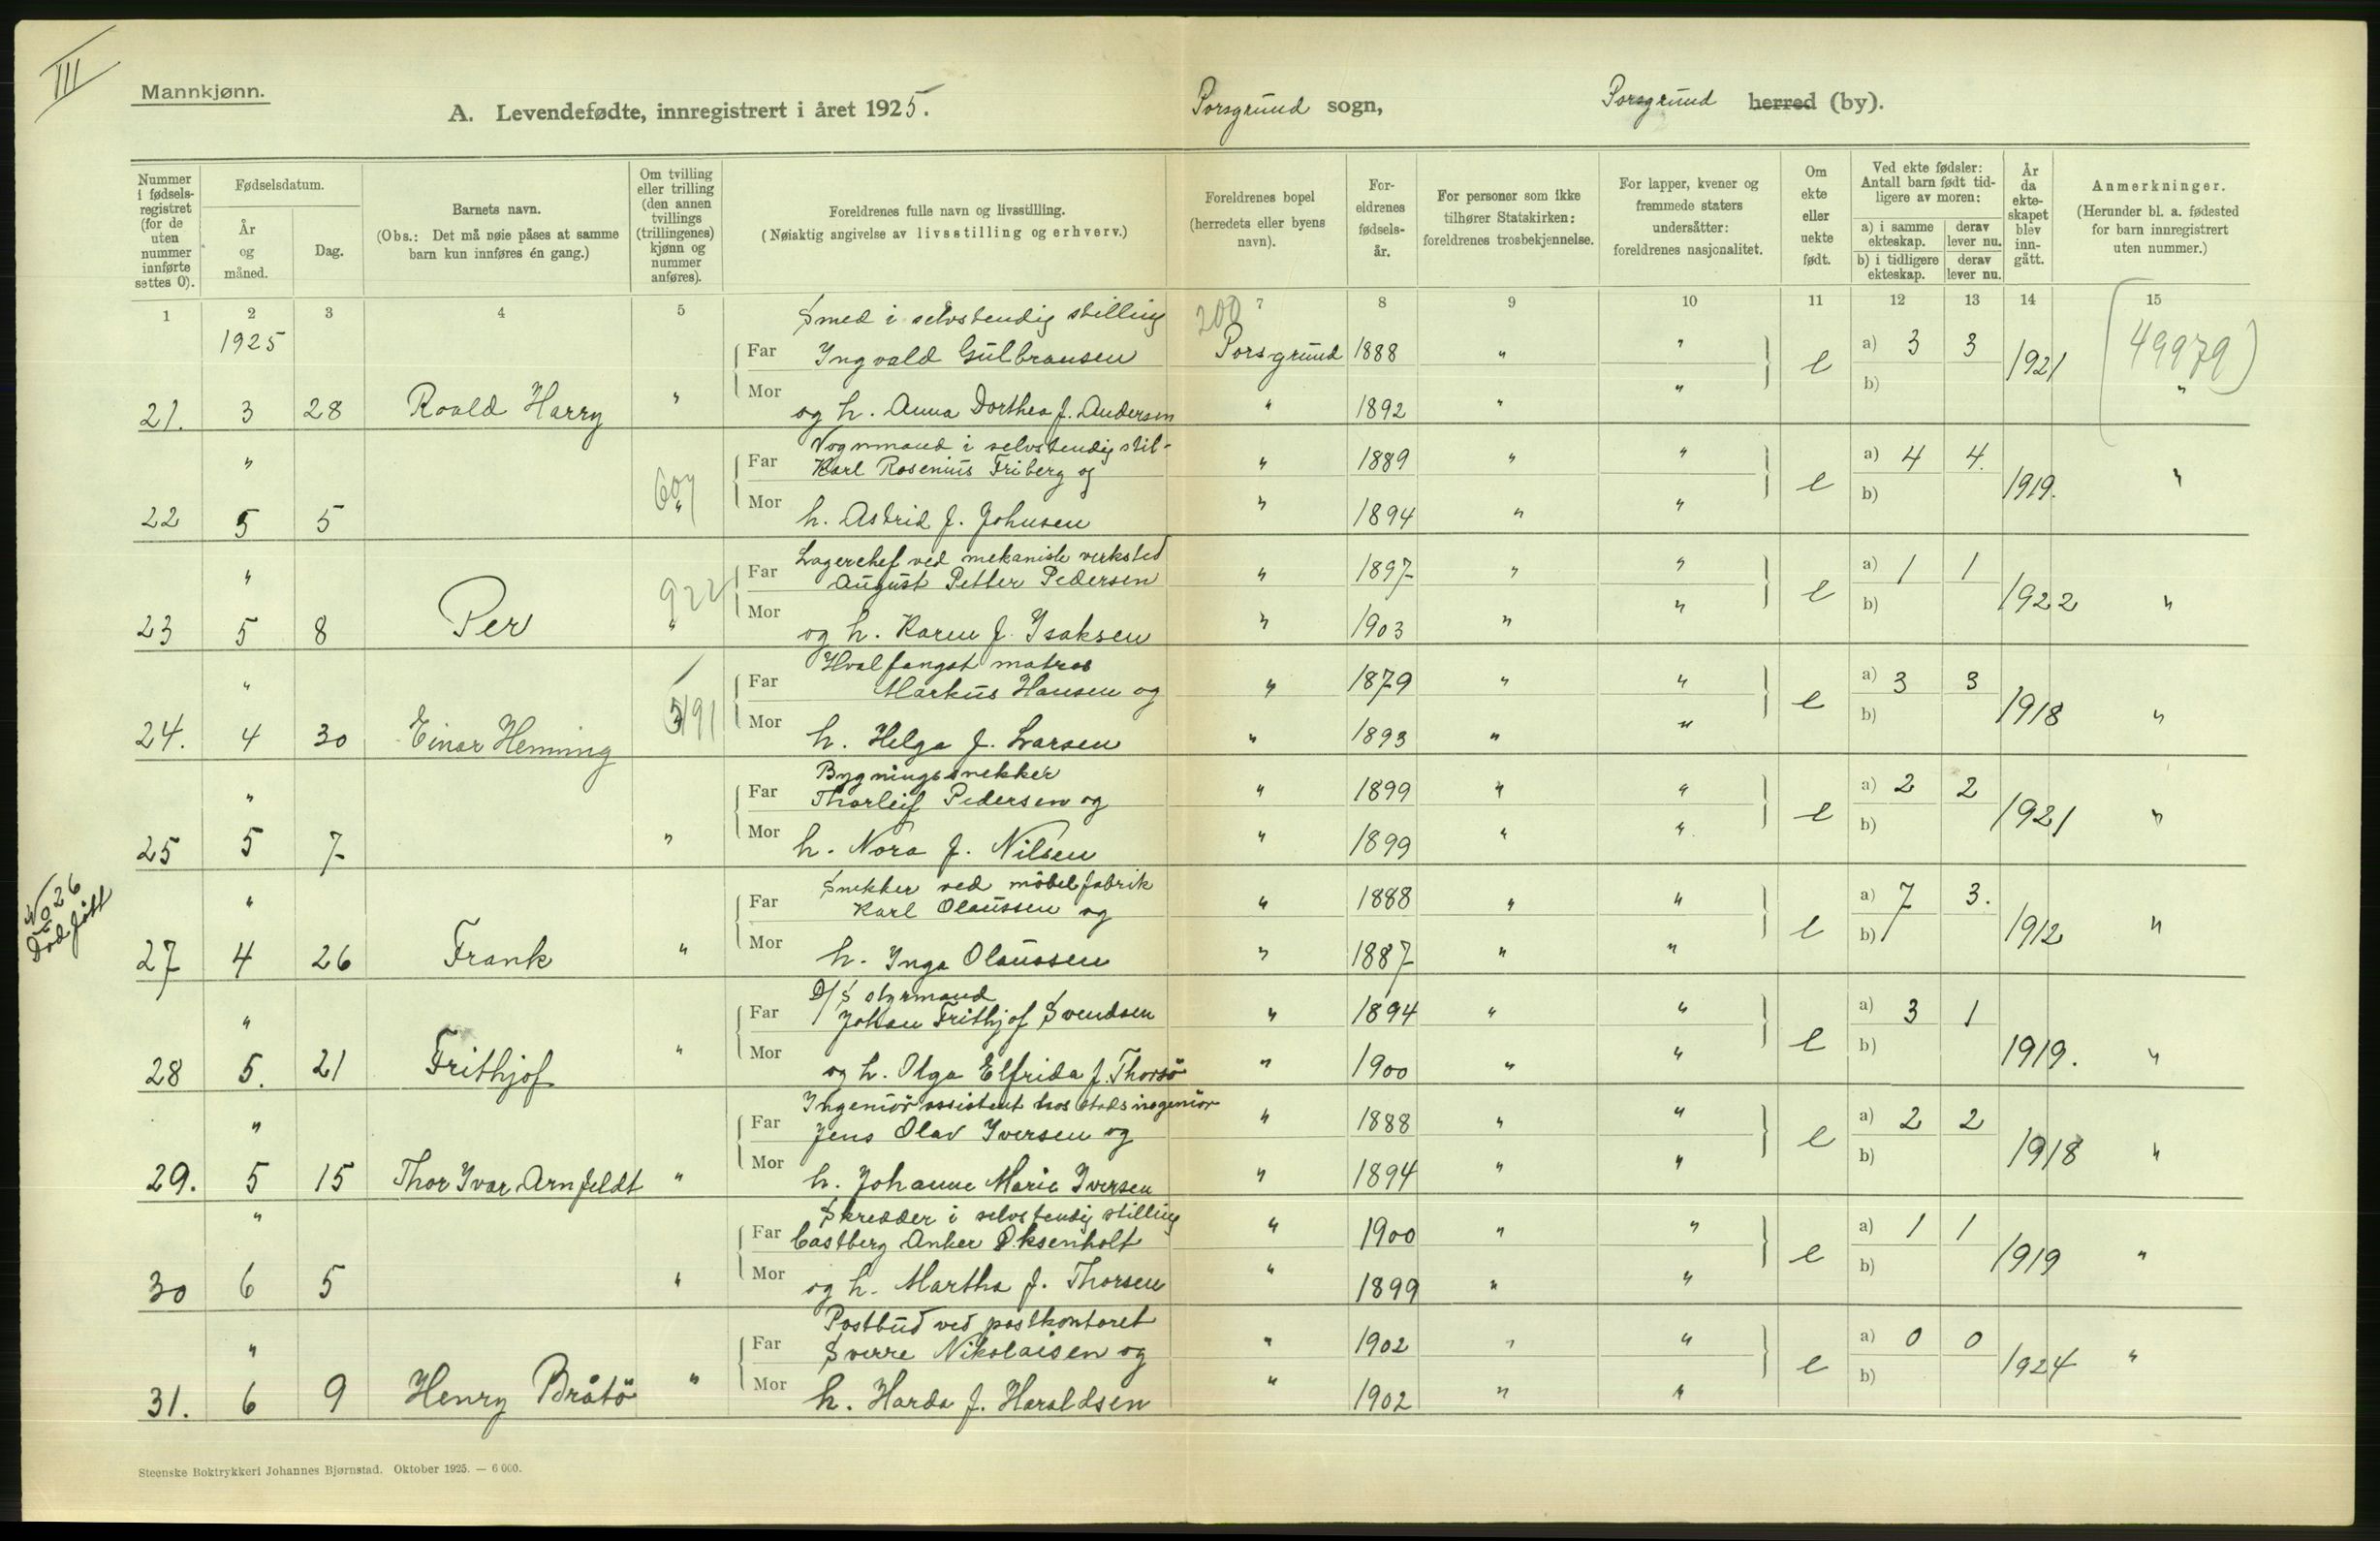 III
Mannkjønn.
A. Levendefødte, innregistrert i året 1925.
Porsgrund sogn,
Porsgrund herred (by).
Nummer i fødsels-registret (for de uten nummer innførte settes 0).
Fødselsdatum.
År og måned.
Dag.
Barnets navn.
(Obs.: Det må nøie påses at samme barn kun innføres én gang.)
Om tvilling eller trilling (den annen tvillings (trillingenes) kjønn og nummer anføres).
Foreldrenes fulle navn og livsstilling.
(Nøiaktig angivelse av livsstilling og erhverv.)
Foreldrenes bopel (herredets eller byens navn).
For-eldrenes fødsels-år.
For personer som ikke tilhører Statskirken: foreldrenes trosbekjennelse.
For lapper, kvener og fremmede staters undersåtter: foreldrenes nasjonalitet.
Om ekte eller uekte født.
Ved ekte fødsler: Antall barn født tid-ligere av moren:
a) i samme ekteskap.
derav lever nu.
b) i tidligere ekteskap.
derav lever nu.
År da ekte-skapet blev inn-gått.
Anmerkninger.
(Herunder bl. a. fødested for barn innregistrert uten nummer.)
1 2 3 4 5 7 8 9 10 11 12 13 14 15
1925
200
(49979)
Smed i selvstendig stilling
Far Ingvald Gulbransen Porsgrund 1888 " " e a) 3 3 1921
21. 3 28 Roald Harry " Mor og h. Anna Dorthea f. Andersen " 1892 " " b) "
" Vognmand i selvstendig stil-
Far Karl Rosenius Friberg og " 1889 " " e a) 4 4. 1919. "
607
22 5 5 " Mor h. Astrid f. Johnsen " 1894 " " b)
" Lagerchef ved mekanisk verksted
Far August Petter Pedersen " 1897 " " e a) 1 1 1922 "
922
23 5 8 Per " Mor og h. Karen f. Isaksen " 1903 " " b)
" Hvalfangst matros
Far Markus Hansen og " 1879 " " e a) 3 3 1918 "
24. 4 30 Einar Heming Mor h. Helga f. Larsen " 1893 " " b)
" Bygningssnekker
Far Thorleif Pedersen og " 1899 " " e a) 2 2 1921 "
25 5 7 " Mor h. Nora f. Nilsen " 1899 " " b)
No 26
Död født
" Snekker ved möbelfabrik
Far Karl Olaussen og " 1888 " " e a) 7 3. 1912 "
27 4 26 Frank " Mor h. Inga Olaussen " 1887 " " b)
" D/S styrmand
Far Johan Frithjof Svendsen " 1894 " " e a) 3 1 1919. "
28 5. 21 Frithjof " Mor og h. Olga Elfrida f. Thorsö " 1900 " " b)
" Ingeniör assistent hos stadsingeniör
Far Jens Olav Iversen og " 1888 " " e a) 2 2 1918 "
29. 5 15 Thor Ivar Arnfeldt " Mor h. Johanne Marie Iversen " 1894 " " b)
" Skredder i selvstendig stilling
Far Castberg Anker Oksenholt " 1900 " " e a) 1 1 1919 "
30 6 5 " Mor og h. Martha f. Thorsen " 1899 " " b)
" Postbud ved postkontoret
Far Sverre Nikolaisen og " 1902 " " e a) 0 0 1924 "
31. 6 9 Henry Bråtö " Mor h. Harda f. Haraldsen " 1902 " " b)
Steenske Boktrykkeri Johannes Bjørnstad. Oktober 1925. — 6 000.